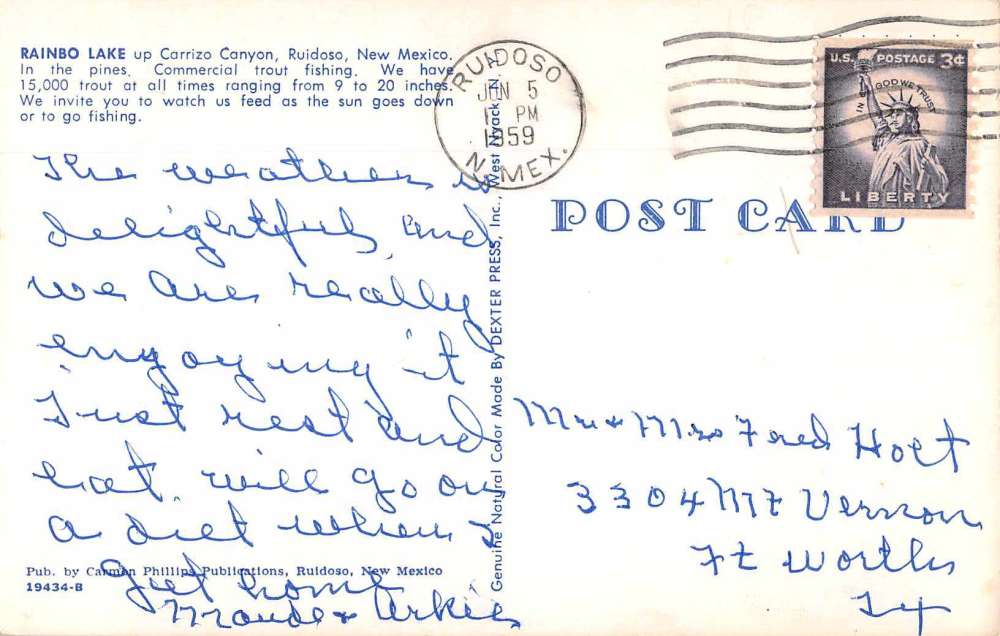 RAINBO LAKE up Carrizo Canyon, Ruidoso, New Mexico.
In the pines. Commercial trout fishing. We have
15,000 trout at all times ranging from 9 to 20 inches.
We invite you to watch us feed as the sun goes down
or to go fishing.
The weather is
delightful, and
we are really
enjoying it
Just rest and
eat. will go on
a diet when I
get home
Maude & Arkie
Pub. by Carmen Phillips Publications, Ruidoso, New Mexico
19434-B
Genuine Natural Color Made By DEXTER PRESS, Inc., West Nyack, N. Y.
RUIDOSO
JUN 5
PM
1959
N. MEX.
U.S. POSTAGE 3¢
IN GOD WE TRUST
LIBERTY
POST CARD
Mr & Mrs Fred Holt
3304 Mt Vernon
Ft Worth
Tx